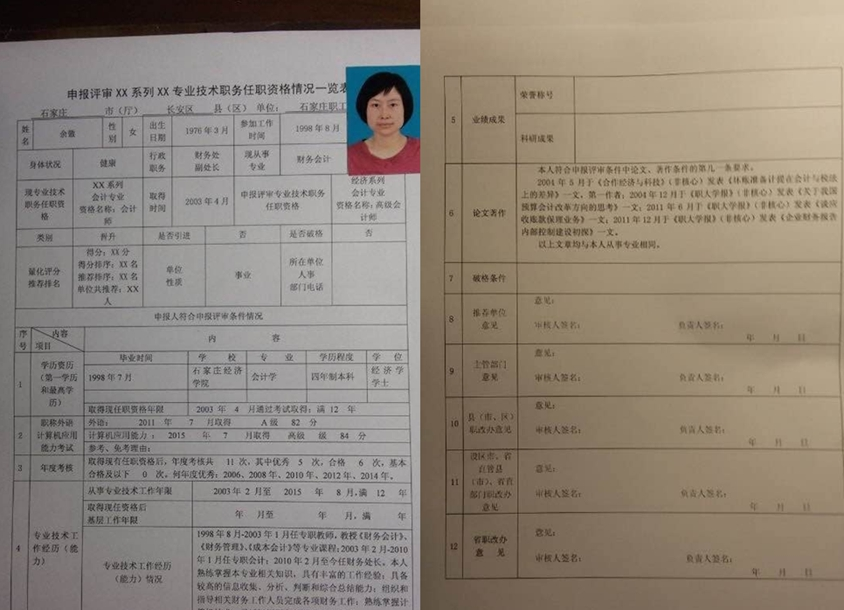 申报评审 XX 系列 XX 专业技术职务任职资格情况一览表
石家庄 市（厅） 长安区 县（区） 单位： 石家庄职工
姓名 余微 性别 女 出生日期 1976 年 3 月 参加工作时间 1998 年 8 月
身体状况 健康 行政职务 财务处副处长 现从事专业 财务会计
现专业技术职务任职资格 XX 系列会计专业资格名称：会计师 取得时间 2003 年 4 月 申报评审专业技术职务任职资格 经济系列会计专业资格名称：高级会计师
类别 晋升 是否引进 否 是否破格 否
量化评分推荐排名 得分：XX 分 得分排序：XX 名 推荐排序：XX 名 单位共推荐：XX 人 单位性质 事业 所在单位人事部门电话
申报人符合申报评审条件情况
序号 内容 项目 内 容
1 学历资历（第一学历和最高学历） 毕业时间 学 校 专 业 学历程度 学 位
1998 年 7 月 石家庄经济学院 会计学 四年制本科 经济学学士
取得现任职资格年限 2003 年 4 月通过考试取得；满 12 年
2 职称外语计算机应用能力考试 外语： 2011 年 7 月取得 A 级 82 分
计算机应用能力： 2015 年 7 月取得 高级 级 84 分
参考、免考理由：
3 年度考核 取得现有任职资格后，年度考核共 11 次，其中优秀 5 次，合格 6 次，基本
合格及以下 0 次。何年度优秀：2006、2008 年、2010 年、2012 年、2014 年。
4 专业技术工作经历（能力） 从事专业技术工作年限 2003 年 2 月至 2015 年 8 月，满 12 年
取得现任资格后基层工作年限 年 月至 年 月，满 年
专业技术工作经历（能力）情况
1998 年 8 月-2003 年 1 月任专职教师，教授《财务会计》、
《财务管理》、《成本会计》等专业课程；2003 年 2 月-2010
年 1 月任专职会计；2010 年 2 月至今任财务处长。本人
熟练掌握本专业相关知识，具有丰富的工作经验；具备
较高的信息收集、分析、判断和综合总结能力；组织和
指导相关财务工作人员完成各项财务工作；熟练掌握计
5 业绩成果 荣誉称号
科研成果
6 论文著作 本人符合申报评审条件中论文、著作条件的第几一条要求。
2004 年 5 月于《合作经济与科技》（非核心）发表《坏账准备计提在会计与税法
上的差异》一文，第一作者；2004 年 12 月于《职大学报》（非核心）发表《关于我国
预算会计改革方向的思考》一文；2011 年 6 月于《职大学报》（非核心）发表《谈应
收账款保理业务》一文；2011 年 12 月于《职大学报》（非核心）发表《企业财务报告
内部控制建设初探》一文。
以上文章均与本人从事专业相同。
7 破格条件
8 推荐单位意见 意见：
审核人签名： 负责人签名：
年 月 日
9 主管部门意见 意见：
审核人签名： 负责人签名：
年 月 日
10 县（市、区）职改办意见 意见：
审核人签名： 负责人签名：
年 月 日
11 设区市、省直管县（市）、省直部门职改办意见 意见：
审核人签名： 负责人签名：
年 月 日
12 省职改办意 见 意见：
审核人签名： 负责人签名：
年 月 日